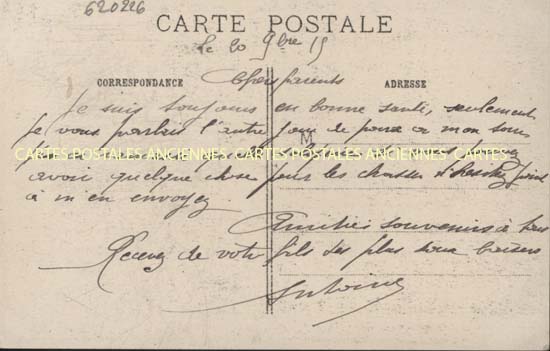 620226
CARTE POSTALE
Le 20 9bre 15
CORRESPONDANCE
ADRESSE
Chers parents
Je suis toujours en bonne santé, seulement
je vous parlais l'autre jour de poux
M
CARTES POSTALES ANCIENNES CARTES POSTALES ANCIENNES CARTES
avoir quelque chose pour les chasser
à m'en envoyer.
Amitiés souvenirs à tous
Recevez de votre fils des plus doux baisers
Antoine